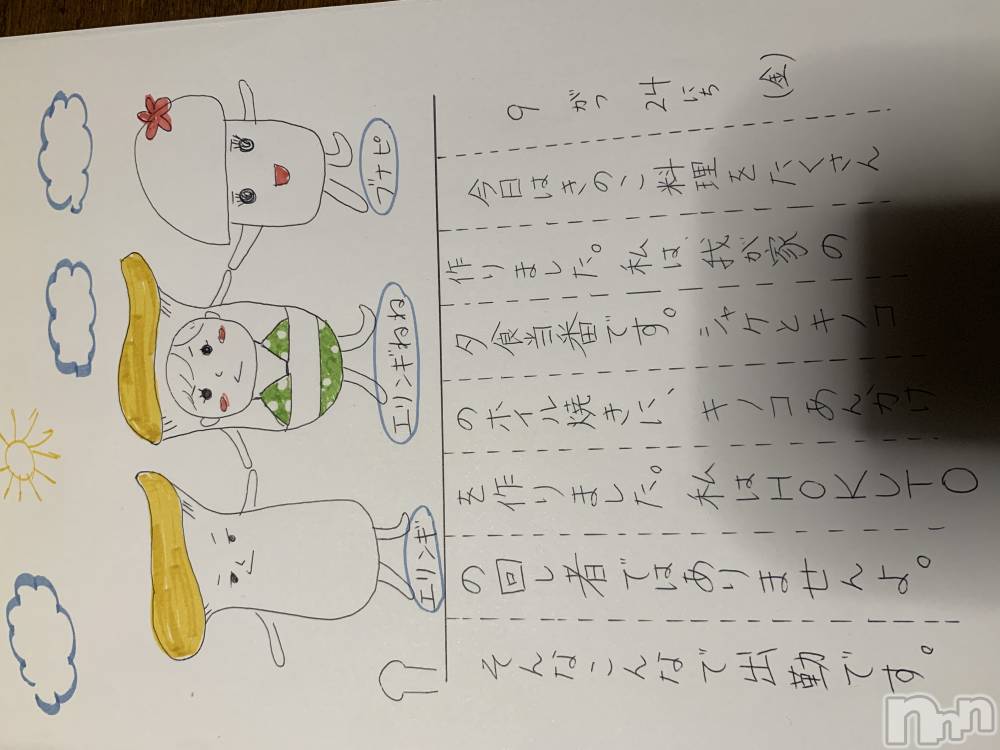 9がつ24にち(金)
今日はきのこ料理をたくさん
作りました。私は、我が家の
夕食当番です。シャケとキノコ
のホイル焼きに、キノコあんかけ
を作りました。私はHOKUTO
の回し者ではありませんよ。
そんなこんなで出勤です。
エリンギ
エリンギねねね
ブナピ
nnn